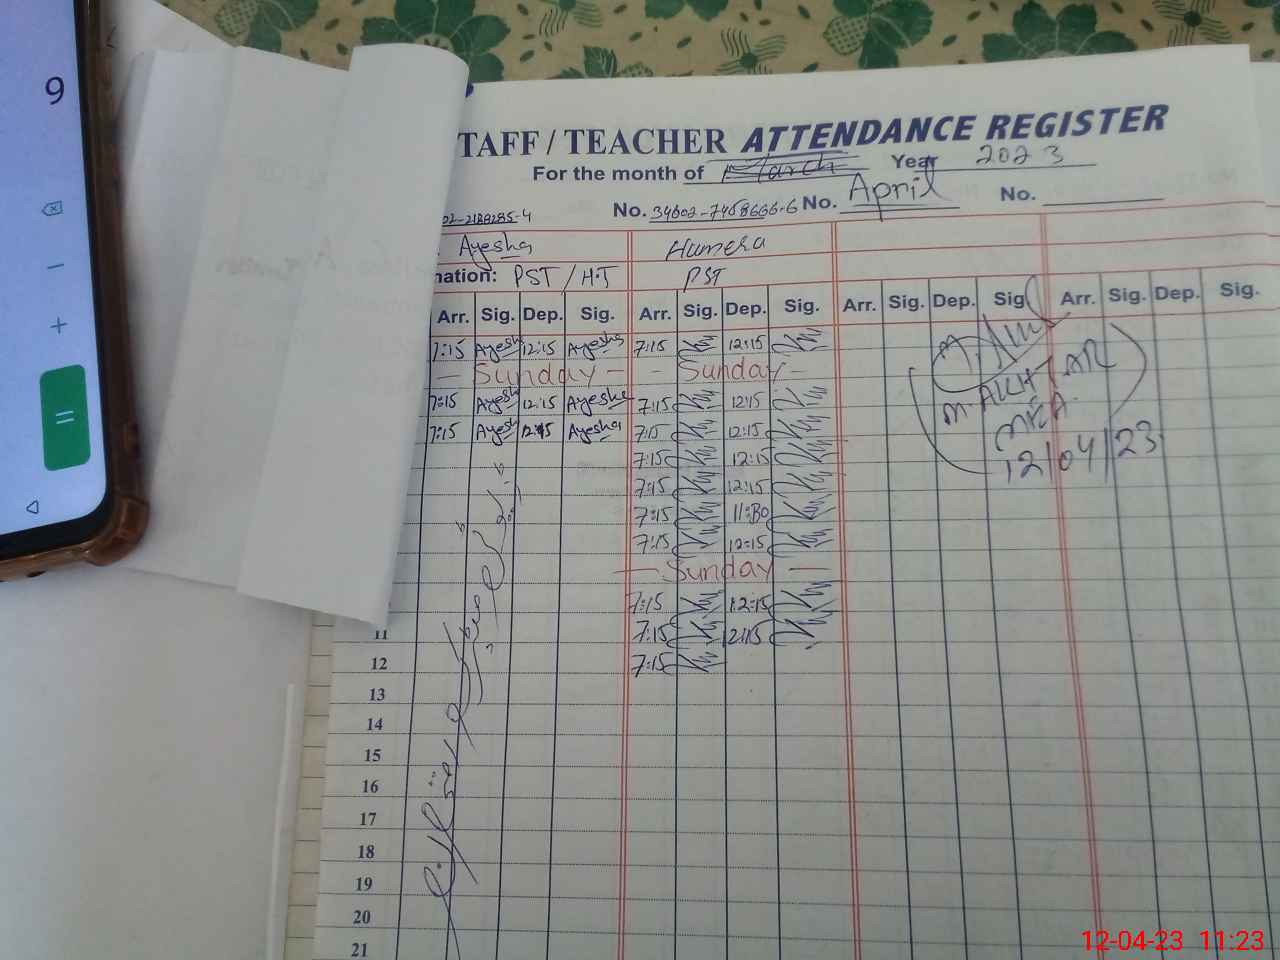 9
TAFF / TEACHER ATTENDANCE REGISTER
For the month of March Year 2023
No. 34602-7458666-6 No. April No.
Ayesha Humera
nation: PST / H.T PST
Arr. Sig. Dep. Sig. Arr. Sig. Dep. Sig. Arr. Sig. Dep. Sig. Arr. Sig. Dep. Sig.
7:15 Ayesha 12:15 Ayesha 7:15 12:15
— Sunday — - Sunday -
7:15 Ayesha 12:15 Ayesha 7:15 12:15
7:15 Ayesha 12:15 Ayesha 7:15 12:15
7:15 12:15
7:15 12:15
7:15 11:30
7:15 12:15
— Sunday —
7:15 12:15
11 7:15 12:15
12 7:15
13
14
15
16
17
18
19
20
21
MEA
12/04/23
12-04-23 11:23